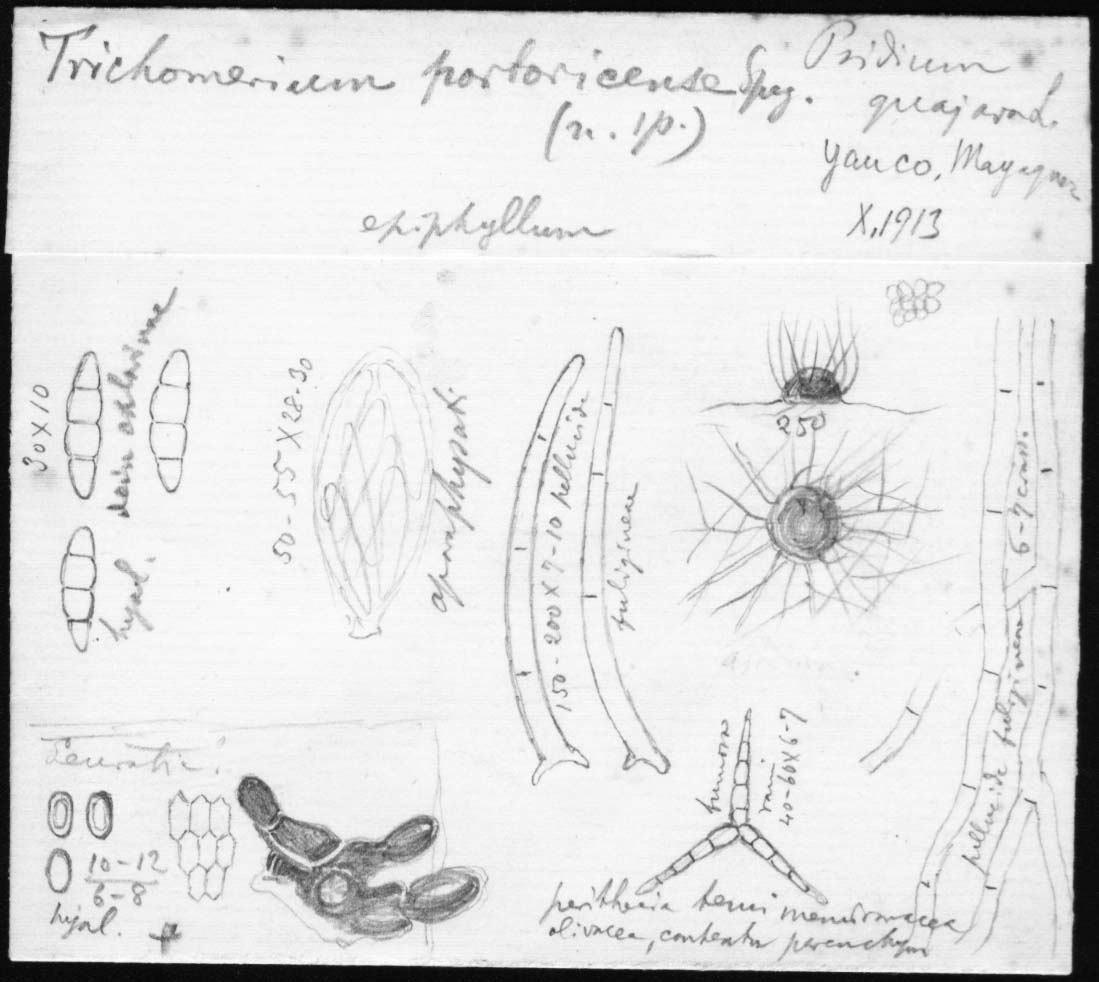 Trichomerium portoricense Speg.
(n. sp.)
Psidium
guajava L.
Yauco, Mayaguez
X, 1913
epiphyllum
30 X 10
hyal. dein
50-55 X 28-30
aparaphysati
150-200 X 7-10 pellucide
fuligineae
250
6-7 crass.
pellucide fuligineae
10-12
6-8
hyal.
fumosae
40-60X6-7
perithecia tenui membranacea
olivacea, contextu parenchym